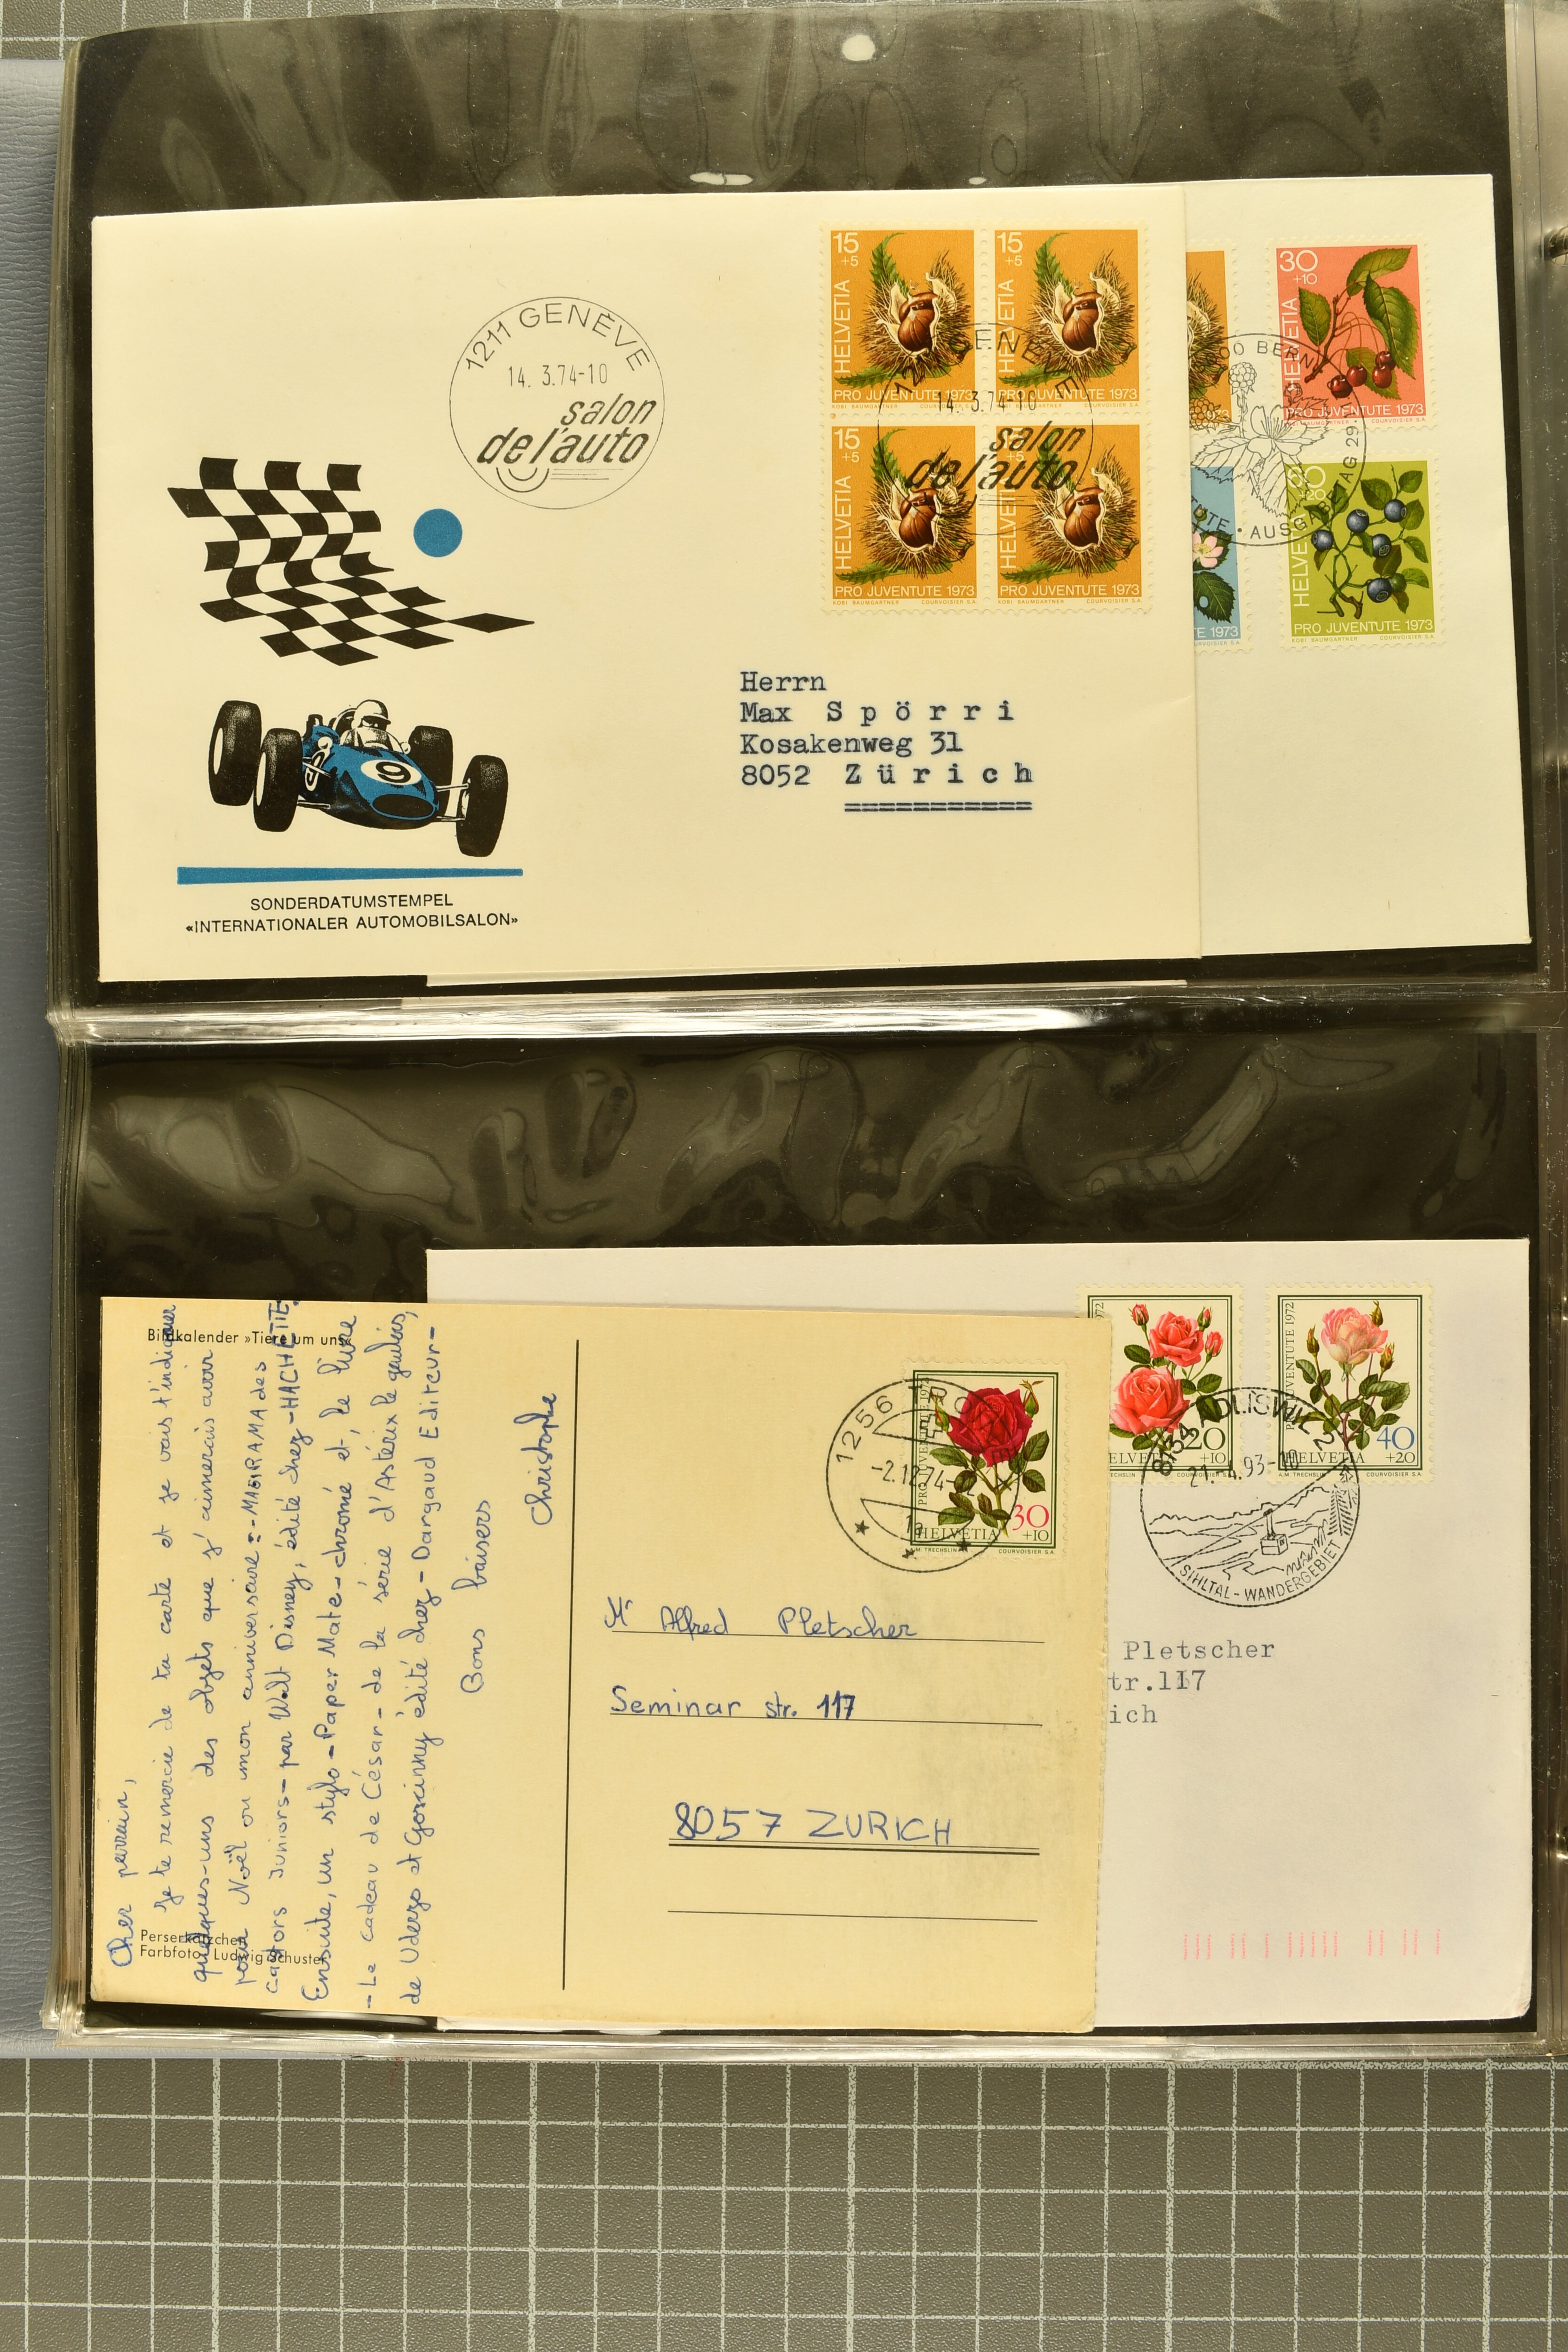 1211 GENÈVE
14. 3.74-10
salon
de l'auto
15
+5
HELVETIA
PRO JUVENTUTE 1973
KOBI BAUMGARTNER COURVOISIER S.A.
15
+5
HELVETIA
PRO JUVENTUTE 1973
KOBI BAUMGARTNER COURVOISIER S.A.
15
+5
HELVETIA
PRO JUVENTUTE 1973
KOBI BAUMGARTNER COURVOISIER S.A.
15
+5
HELVETIA
PRO JUVENTUTE 1973
KOBI BAUMGARTNER COURVOISIER S.A.
1211 GENÈVE
14. 3.74-10
salon
de l'auto
9
SONDERDATUMSTEMPEL
«INTERNATIONALER AUTOMOBILSALON»
Herrn
Max Spörri
Kosakenweg 31
8052 Zürich
30
+10
HELVETIA
PRO JUVENTUTE 1973
KOBI BAUMGARTNER COURVOISIER S.A.
BERN
AUSGABETAG 29.
HELVETIA
PRO JUVENTUTE 1973
KOBI BAUMGARTNER COURVOISIER S.A.
E 1973
Bildkalender »Tiere um uns«
Cher parrain,
Je te remercie de ta carte et je vais t'indiquer
quelques-uns des objets que j'aimerais avoir
pour Noël ou mon anniversaire :
castors Juniors - par Walt Disney, édité chez - HACHETTE.
Ensuite, un stylo - Paper Mate - chromé et, le livre
- Le cadeau de César - de la série d'Astérix le gaulois,
de Uderzo et Goscinny édité chez - Dargaud Editeur -
Bons baisers
Christophe
Perserkätzchen
Farbfoto: Ludwig Schuster
1256
-2.12.74
PRO JUVENTUTE
HELVETIA
30
+10
A.M. TRECHSLIN COURVOISIER S.A.
Mr Alfred Pletscher
Seminar str. 117
8057 ZURICH
20
+10
HELVETIA
COURVOISIER S.A.
PRO JUVENTUTE 1972
40
+20
HELVETIA
A.M. TRECHSLIN COURVOISIER S.A.
8134 ADLISWIL 2
21. 4.93-10
SIHLTAL-WANDERGEBIET
Pletscher
tr.117
ich